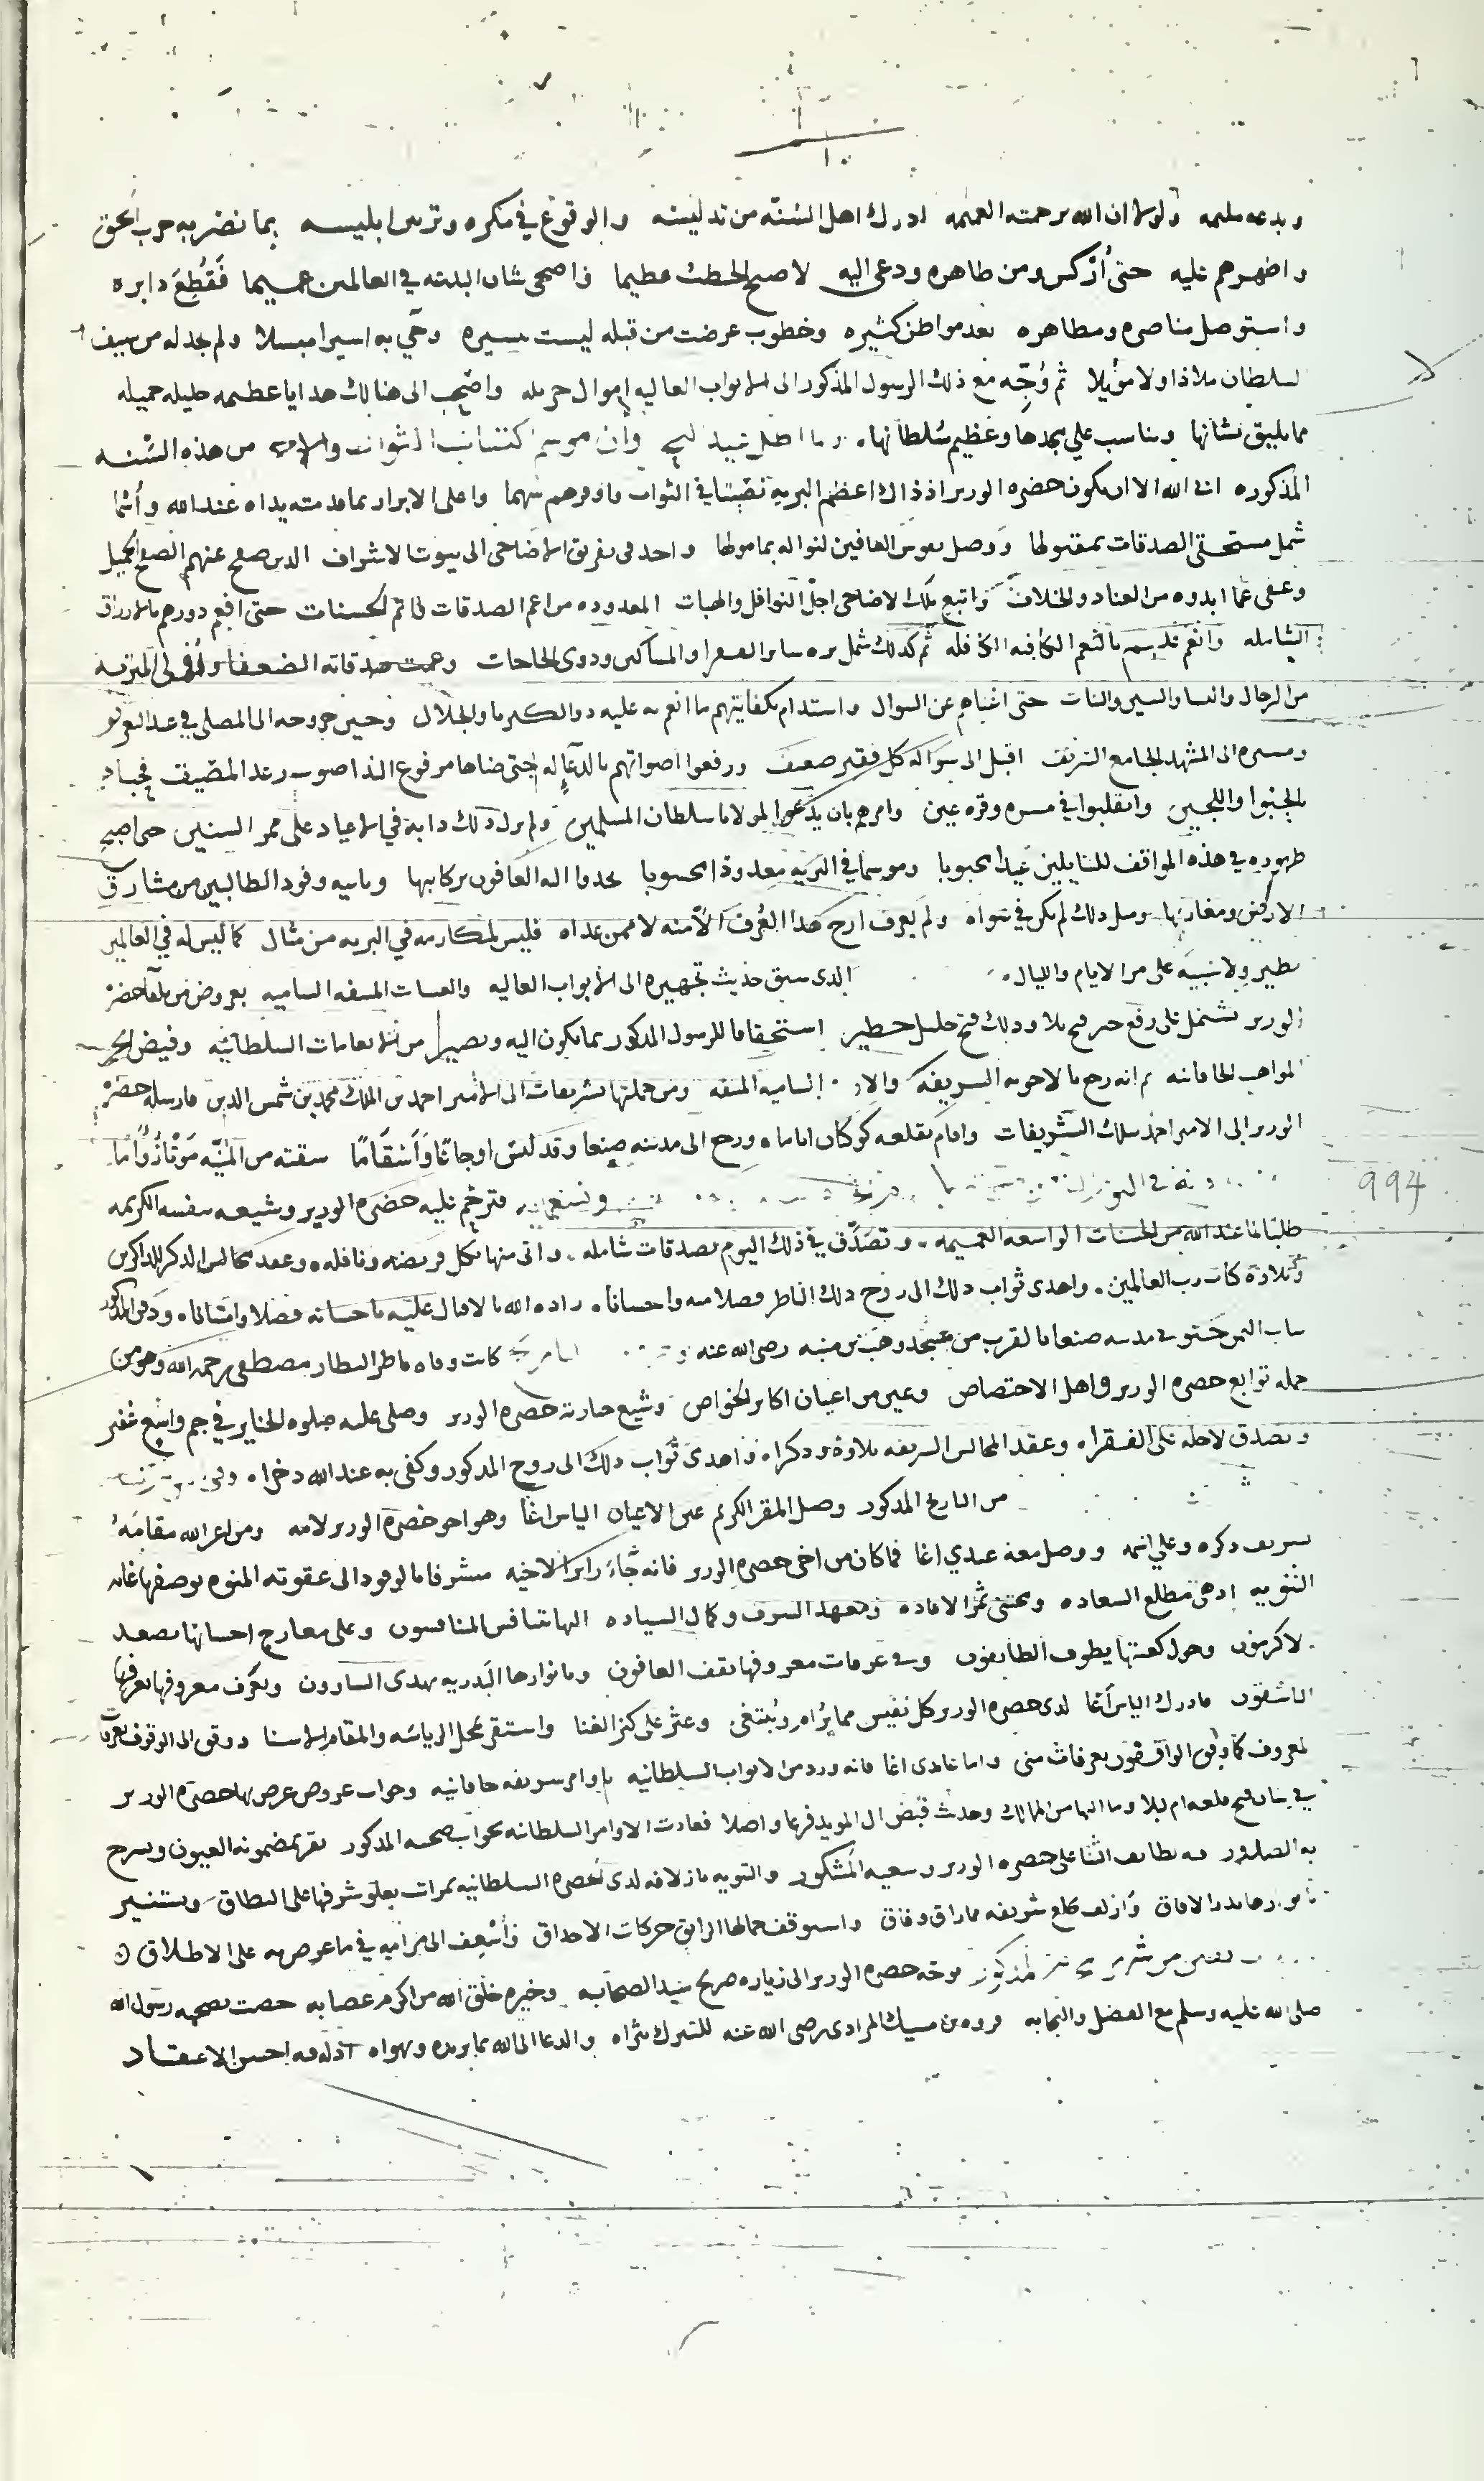 وبدعه مليمه ولولا ان الله برحمته العميمه ادرك اهل السنة من تدليسه والوقوع في مكره وتزيين ابليسه بما نصر به حزب الحق
واظهرهم عليه حتى أركس ومن ظاهره ودعى اليه لاصبح الخطب عظيما واضحى شان البليه في العالمين عميما فقُطِعَ دابره
واستوصل مناصره ومظاهره بعد مواطن كثيره وخطوب عرضت من قبله ليست يسيره وجي به اسيرا مبسلا ولم يجد له من سيف
السلطان ملاذا ولا موئلا ثم وُجّه مع ذلك الرسول المذكور الى الابواب العاليه اموال جزيله واصحب الى هنالك هدايا عظيمه جليله جميله
مما يليق بشانها ويناسب علي مجدها وعظيم سُلطانها ولما اطل عيد وان موسم اكتساب الثواب والاجر من هذه السنه
المذكوره ابى الله الا ان يكون حضره الوزير اذ ذاك اعظم البريه نصيبا في الثواب واوفرهم سهما واعلى الابرار بما قدمته يداه عند الله وأسما
شمل مستحقي الصدقات بمقبولها ووصل نفوس العافين لنواله بمامولها واخذ في تفريق الاضاحي الى بيوت الاشراف الذين صفح عنهم الصفح الجميل
وعفى عما ابدوه من العناد والخلاف واتبع تلك الاضاحي اجل النوافل والهبات المعدوده من اعم الصدقات واتم الحسنات حتى افعم دورهم بالارزاق
الشامله وانعم عليهم بالنعم الكافيه الكافله ثم كذلك شمل بره ساير الفقرا والمساكين وذوي الحاجات وعمت صدقاته الضعفا واولي المتربه
من الرجال والنسا والبنين والبنات حتى اغناهم عن السوال واستدام بكفايتهم ما انعم به عليه ذو الكبريا والجلال وحين خروجه الى المصلى في عيد
ومسيره الى المشهد الجامع الشريف اقبل الى سواله كل فقير ضعيف ورفعوا اصواتهم بالدعا له حتى ضاها مرفوع الندا صوت رعد المصيف
واللجين وانقلبوا في مسره وقره عين وامرهم بان يدعوا لمولانا سلطان المسلمين ولم يزل ذلك دابه في الاعياد على ممر السنين حتى اصبح
ظهوره في هذه المواقف للسايلين عيدا محبوبا وموسما في البريه معدودا محسوبا يحدوا اليه العافون بركابها وياتيه وفود الطالبين من مشارق
الارض ومغاربها ومثل ذلك لم يكن في سواه ولم يعرف ارج هذا العُرف الا منه لا ممن عداه فليس لمكارمه في البريه من مثال كما ليس له في العالمين
نظير ولا شبيه على مر الايام والليال الذي سبق حديث تجهيزه الى الابواب العاليه والعتبات المنيفه الساميه بعروض من تلقا حضرة
الوزير تشتمل على رفع خبر فتح بلاد وذلك فتح جليل خطير استحقاقا للرسول المذكور بما يكون اليه ويصير من الانعامات السلطانيه وفيض
المواهب الخاقانيه ثم انه رجع بالاجوبه الشريفه الساميه المنيفه ومن جملتها تشريفات الى الامير احمد بن الملك محمد بن شمس الدين فارسله حضرة
الوزير الى الامير احمد بتلك التشريفات واقام بقلعه كوكبان اياما ورجع الى مدينه صنعا وقد لبس اوجاعا وأسقاما سقته من المنيه موتا زُؤاما
فترحم عليه حضرة الوزير وشيعه بنفسه الكريمه
طلبا لما عند الله من الحسنات الواسعه العميمه وتصدّق في ذلك اليوم بصدقات شامله واتى منها بكل فريضه ونافله وعقد مجالس الذكر للذاكرين
وتلاوة كتاب رب العالمين واهدى ثواب ذلك الى روح ذلك الناظر فضلا منه واحسانا زاده الله بالاقبال عليه باحسانه فضلا وامتنانا ودفن المذكور
بباب اليمن في مدينه صنعا بالقرب من مسجد وهب بن منبه رضي الله عنه كانت وفاه ناظر البيطار مصطفى رحمه الله وهو من
جمله توابع حضره الوزير واهل الاختصاص وعين من اعيان اكابر الخواص وشيع جنازته حضرة الوزير وصلى عليه صلوه الجنايز في جم واسع غفير
وتصدق لاجله على الفقراء وعقد المجالس الشريفه تلاوة وذكرا واهدى ثواب ذلك الى روح المذكور وكفى به عند الله ذخرا
من التاريخ المذكور وصل المقر الكريم عين الاعيان الياس اغا وهو اخو حضرة الوزير لامه ومن اعز الله مقامه
بشريف ذكره وعلي اسمه ووصل معه عبدي اغا فما كان من اخي حضرة الوزير فانه جاء زايرا لاخيه متشرفا بالوفود الى عقوته المنوه بوصفها غايه
التنويه اذ هي مطلع السعاده ومجتنى ثمر الافاده ومعهد الشرف وكمال السياده اليها يتنافس المتنافسون وعلى معارج احسانها يصعد
الاكرمون وحول كعبتها يطوف الطايفون وفي عرفات معروفها يقف العافون وبانوارها البدريه يهدى السارون وبعَرف معروفها
الناشقون فادرك الياس اغا لدى حضرة الوزير كل نفيس مما يُرام ويُبتغى وعثر على كنز الغنا واستقر بمحل الرياسه والمقام الاسنا
لمعروف كما وقف الواقفون بعرفات منى واما عبدي اغا فانه ورد من الابواب السلطانيه باوامر شريفه خاقانيه وجواب عروض عرض بها حضرة الوزير
في بيان فتح قلعه ام ليلا وما اليها من الممالك وحدث قبض ال المويد فرعا واصلا فعادت الاوامر السلطانيه بجواب صحبه المذكور تقر بمضمونه العيون ويشرح
به الصدور فيه لطايف الثنا على حضره الوزير وسعيه المشكور والتنويه بازلافه لدى الحضرة السلطانيه بمراتب يعلو شرفها على النطاق ويستنير
بانوارها بدر الافاق وأزلف بخلع شريفه مما راق وفاق واستوقف جمالها الرايق حركات الاحداق وأُسعِف الى مراميه في ما عرض به على الاطلاق
توجه حضرة الوزير الى زياره ضريح سيد الصحابه وخيره خلق الله من اكرم عصابه خصت بصحبه رسول الله
صلى الله عليه وسلم مع الفضل والنجابه فروه بن مسيك المرادي رضي الله عنه للتبرك بثراه والدعا الى الله بما يريده ويهواه اذ له فيه احسن الاعتقاد
994